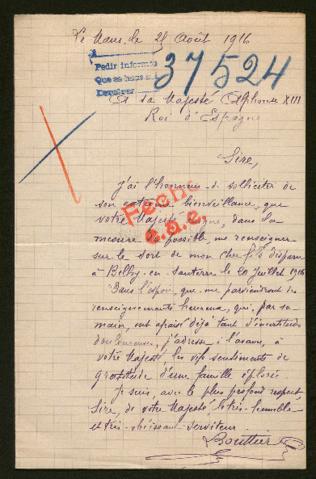 Le Mans, le 21 Août 1916
Pedir informes
Que se haga
37524
A sa Majesté Alphonse XIII
Roi d'Espagne
Sire,
J'ai l'honneur de solliciter de
son extrême bienveillance, que
votre Majesté daigne, dans la
mesure du possible, me renseigner
sur le sort de mon cher fils disparu
à Belloy-en-Santerre le 20 Juillet 1916
Fecho
Dans l'espoir que me parviendront des
renseignements heureux, qui, par sa
main, ont apaisé déjà tant d'incertitudes
douloureuses, j'adresse à l'avance, à
votre Majesté, les vifs sentiments de
gratitude d'une famille éplorée
Je suis, avec le plus profond respect,
Sire, de votre Majesté, le très-humble
et très-obéissant serviteur.